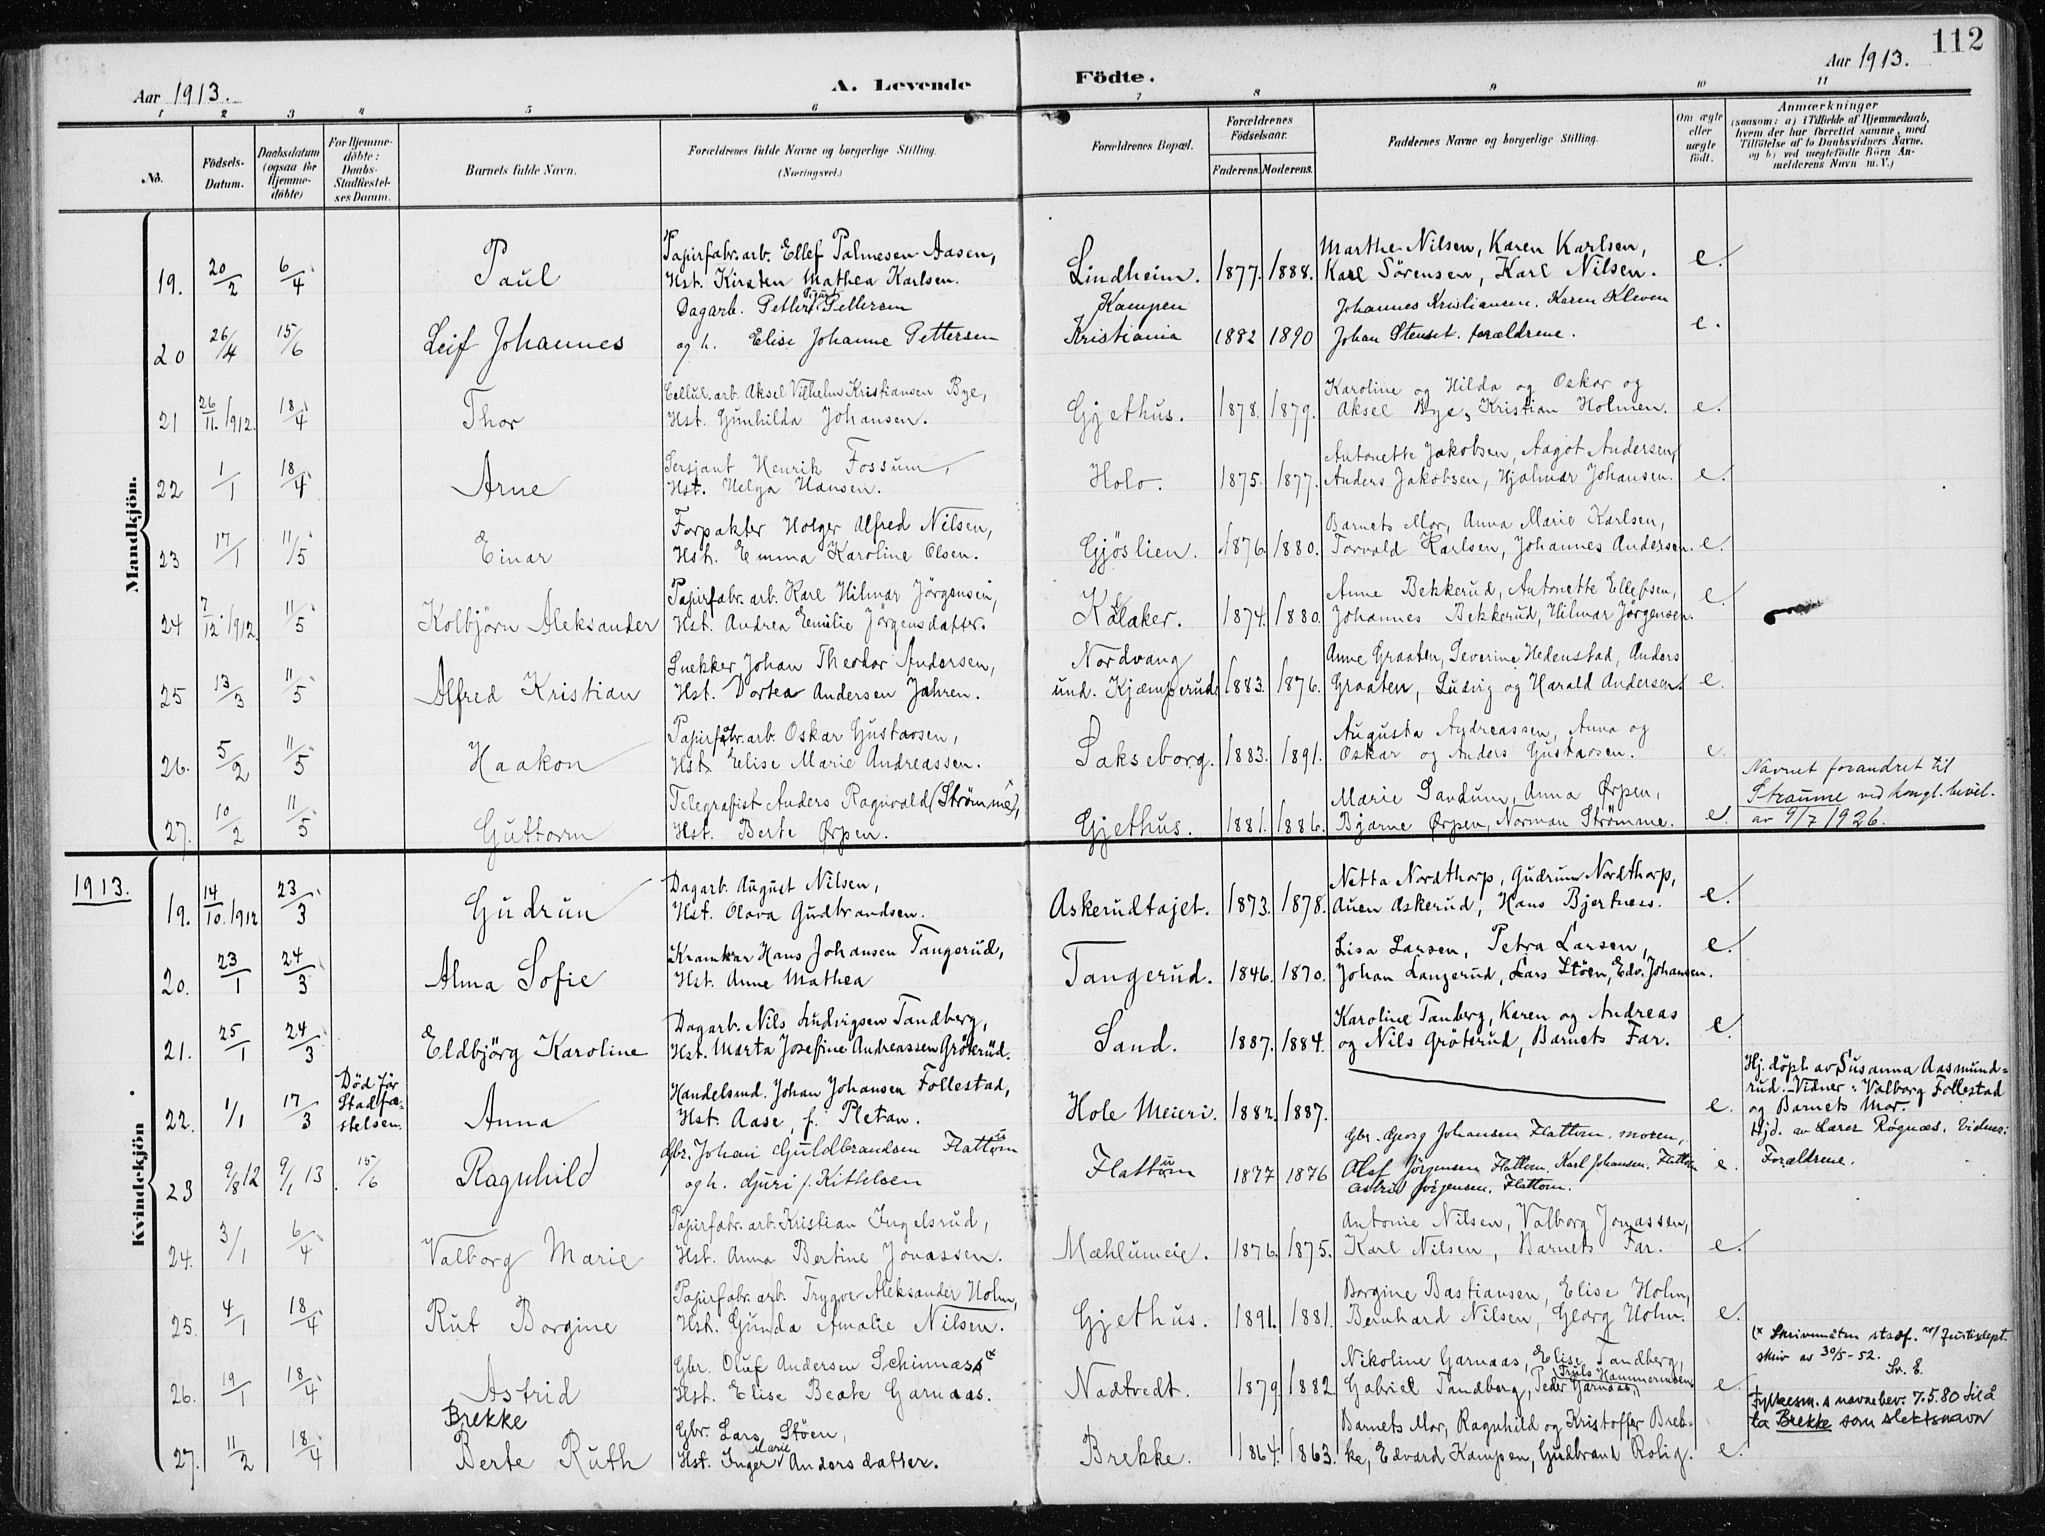 112
Aar 1913.
A. Levende
Födte.
Aar 1913.
1 2 3 4 5 6 7 8 9 10 11
No.
Födsels-Datum.
Daabsdatum (ogsaa for Hjemme-döbte)
For Hjemme-döbte: Daabs-Stadfæstel-ses Datum.
Barnets fulde Navn.
Forældrenes fulde Navne og borgerlige Stilling. (Næringsvei.)
Forældrenes Bopæl.
Forældrenes Födselsaar.
Faderens. Moderens.
Faddernes Navne og borgerlige Stilling.
Om ægte eller uægte födt.
Anmærkninger
(saasom: a) i Tilfælde af Hjemmedaab, hvem der har forrettet samme, med Tilföielse af to Daabsvidners Navne, og b) ved uægtefödte Börn Anmelderens Navn m. V.)
Mandkjön.
19. 20/2 6/4 Paul
Papirfabr.arb. Ellef Palmesen Aasen,
Hst. Kirsten Mathea Karlsen.
Lindheim. 1877. 1888.
Marthe Nilsen, Karen Karlsen,
Karl Sörensen, Karl Nilsen. e.
20 26/4 15/6 Leif Johannes
Dagarb. Petter Sigurd Pettersen
og h. Elise Johanne Pettersen
Kampen
Kristiania 1882 1890
Johannes Kristiansen. Karen Kleven
Johan Stenset. forældrene. e.
21 26/11. 1912. 18/4 Thor
Cellul.arb. Aksel Vilhelm Kristiansen Bye,
Hst. Gunhilda Johansen.
Gjethus. 1878. 1879.
Karoline og Hilda og Oskar og
Aksel Bye, Kristian Holmen. e.
22 1/1 18/4 Arne
Sersjant Henrik Fossum,
Hst. Helga Hansen.
Holo. 1875. 1877.
Antonette Jakobsen, Aagot Andersen,
Anders Jakobsen, Hjalmar Johansen. e.
23 17/1 11/5 Einar
Forpakter Holger Alfred Nilsen,
Hst. Emma Karoline Olsen.
Gjöslien. 1876. 1880.
Barnets Mor, Anna Marie Karlsen,
Torvald Karlsen, Johannes Andersen. e.
24 7/12. 1912. 11/5 Kolbjörn Aleksander
Papirfabr.arb. Karl Hilmar Jörgensen,
Hst. Andrea Emilie Jörgensdatter.
Kålaker. 1874. 1880.
Anne Bekkerud, Antonette Ellefsen,
Johannes Bekkerud, Hilmar Jörgensen. e.
25 13/3 11/5 Alfred Kristian
Snekker Johan Theodor Andersen,
Hst. Dortea Andersen Jahren.
Nordvang
und. Kjæmperud. 1883. 1876.
Anne Graaten, Severine Hedenstad, Anders
Graaten, Ludvig og Harald Andersen. e.
26. 5/2 11/5 Haakon
Papirfabr.arb. Oskar Gustavsen,
Hst. Elise Marie Andreassen.
Sakseborg. 1883. 1891.
Augusta Andreassen, Anna og
Oskar og Anders Gustavsen. e.
27. 10/2 11/5 Guttorm
Telegrafist Anders Ragnvald (Strømme),
Hst. Berte Ørpen.
Gjethus. 1881. 1886.
Marie Sandum, Anna Ørpen,
Bjarne Ørpen, Norman Strømme. e.
Navnet forandret til
Straume ved kongl. bevil.
av 9/7 1926.
1913.
Kvindekjön
19. 14/10. 1912 23/3 Gudrun
Dagarb. August Nilsen,
Hst. Olava Gudbrandsen.
Askerudtajet. 1873. 1878.
Netta Nordthorp, Gudrun Nordthorp,
Auen Askerud, Hans Bjertness. e.
20. 23/1 24/3 Alma Sofie
Kramkar Hans Johansen Tangerud,
Hst. Anne Mathea
Tangerud. 1846. 1870.
Lisa Larsen, Petra Larsen,
Johan Langerud, Lars Stöen, Edv. Johansen. e.
21. 25/1 24/3 Eldbjörg Karoline
Dagarb. Nils Ludvigsen Tandberg,
Hst. Marta Josefine Andreassen Gröterud.
Sand. 1887. 1884.
Karoline Tanberg, Karen og Andreas
og Nils Gröterud, Barnets Far. e.
22. 1/1 17/3 Död för
Stadfæ-
stelsen.
Anna
Handelsmd. Johan Johansen Follestad,
Hst. Aase, f. Pletan.
Hole Meieri. 1882. 1887. e.
Hj. döpt av Susanna Aasmund-
rud. Vidner: Valborg Follestad
og Barnets Mor.
23 9/8 12 9/1 13 15/6 Ragnhild
Gbr. Johan Guldbrandsen Flattum
og h. Guri f. Kittelsen
Flattum 1877 1876
Gbr. Georg Johansen Flattom. moren,
Olaf Jörgensen Flattom. Karl Johansen. Flattom
Astrid Jörgensen. Flattom. e.
Hjd. av Lærer Rognæs. Vidner:
Forældrene.
24. 3/1 6/4 Valborg Marie
Papirfabr.arb. Kristian Ingelsrud,
Hst. Anna Bertine Jonassen.
Mæhlumeie. 1876. 1875.
Antonie Nilsen, Valborg Jonassen,
Karl Nilsen, Barnets Far. e.
25. 4/1 18/4 Rut Borgine
Papirfabr.arb. Trygve Aleksander Holm,
Hst. Gunda Amalie Nilsen.
Gjethus. 1891. 1881.
Borgine Bastiansen, Elise Holm,
Bernhard Nilsen, Georg Holm. e.
26. 19/1 18/4 Astrid
Gbr. Oluf Andersen Schinnass (x
Hst. Elise Beate Garnaas.
Nadtvedt. 1879 1882
Nikoline Garnaas, Elise Tandberg,
Gabriel Tandberg, Peder Garnaas, Truls Hammermoen e.
(x Skrivemåten stadf. v/ Justisdept.
skriv av 30/5-52.
Sv. E.
27. 11/2 18/4 Brekke
Berte Ruth
Gbr. Lars Stöen,
Hst. Inger Marie Andersdatter.
Brekke. 1864. 1863.
Barnets Mor, Ragnhild og Kristoffer Brek-
ke, Edvard Kampen, Gudbrand Rolig. e.
Fylkesm.s navnebev. 7.5.80 til å
ta Brekke som slektsnavn